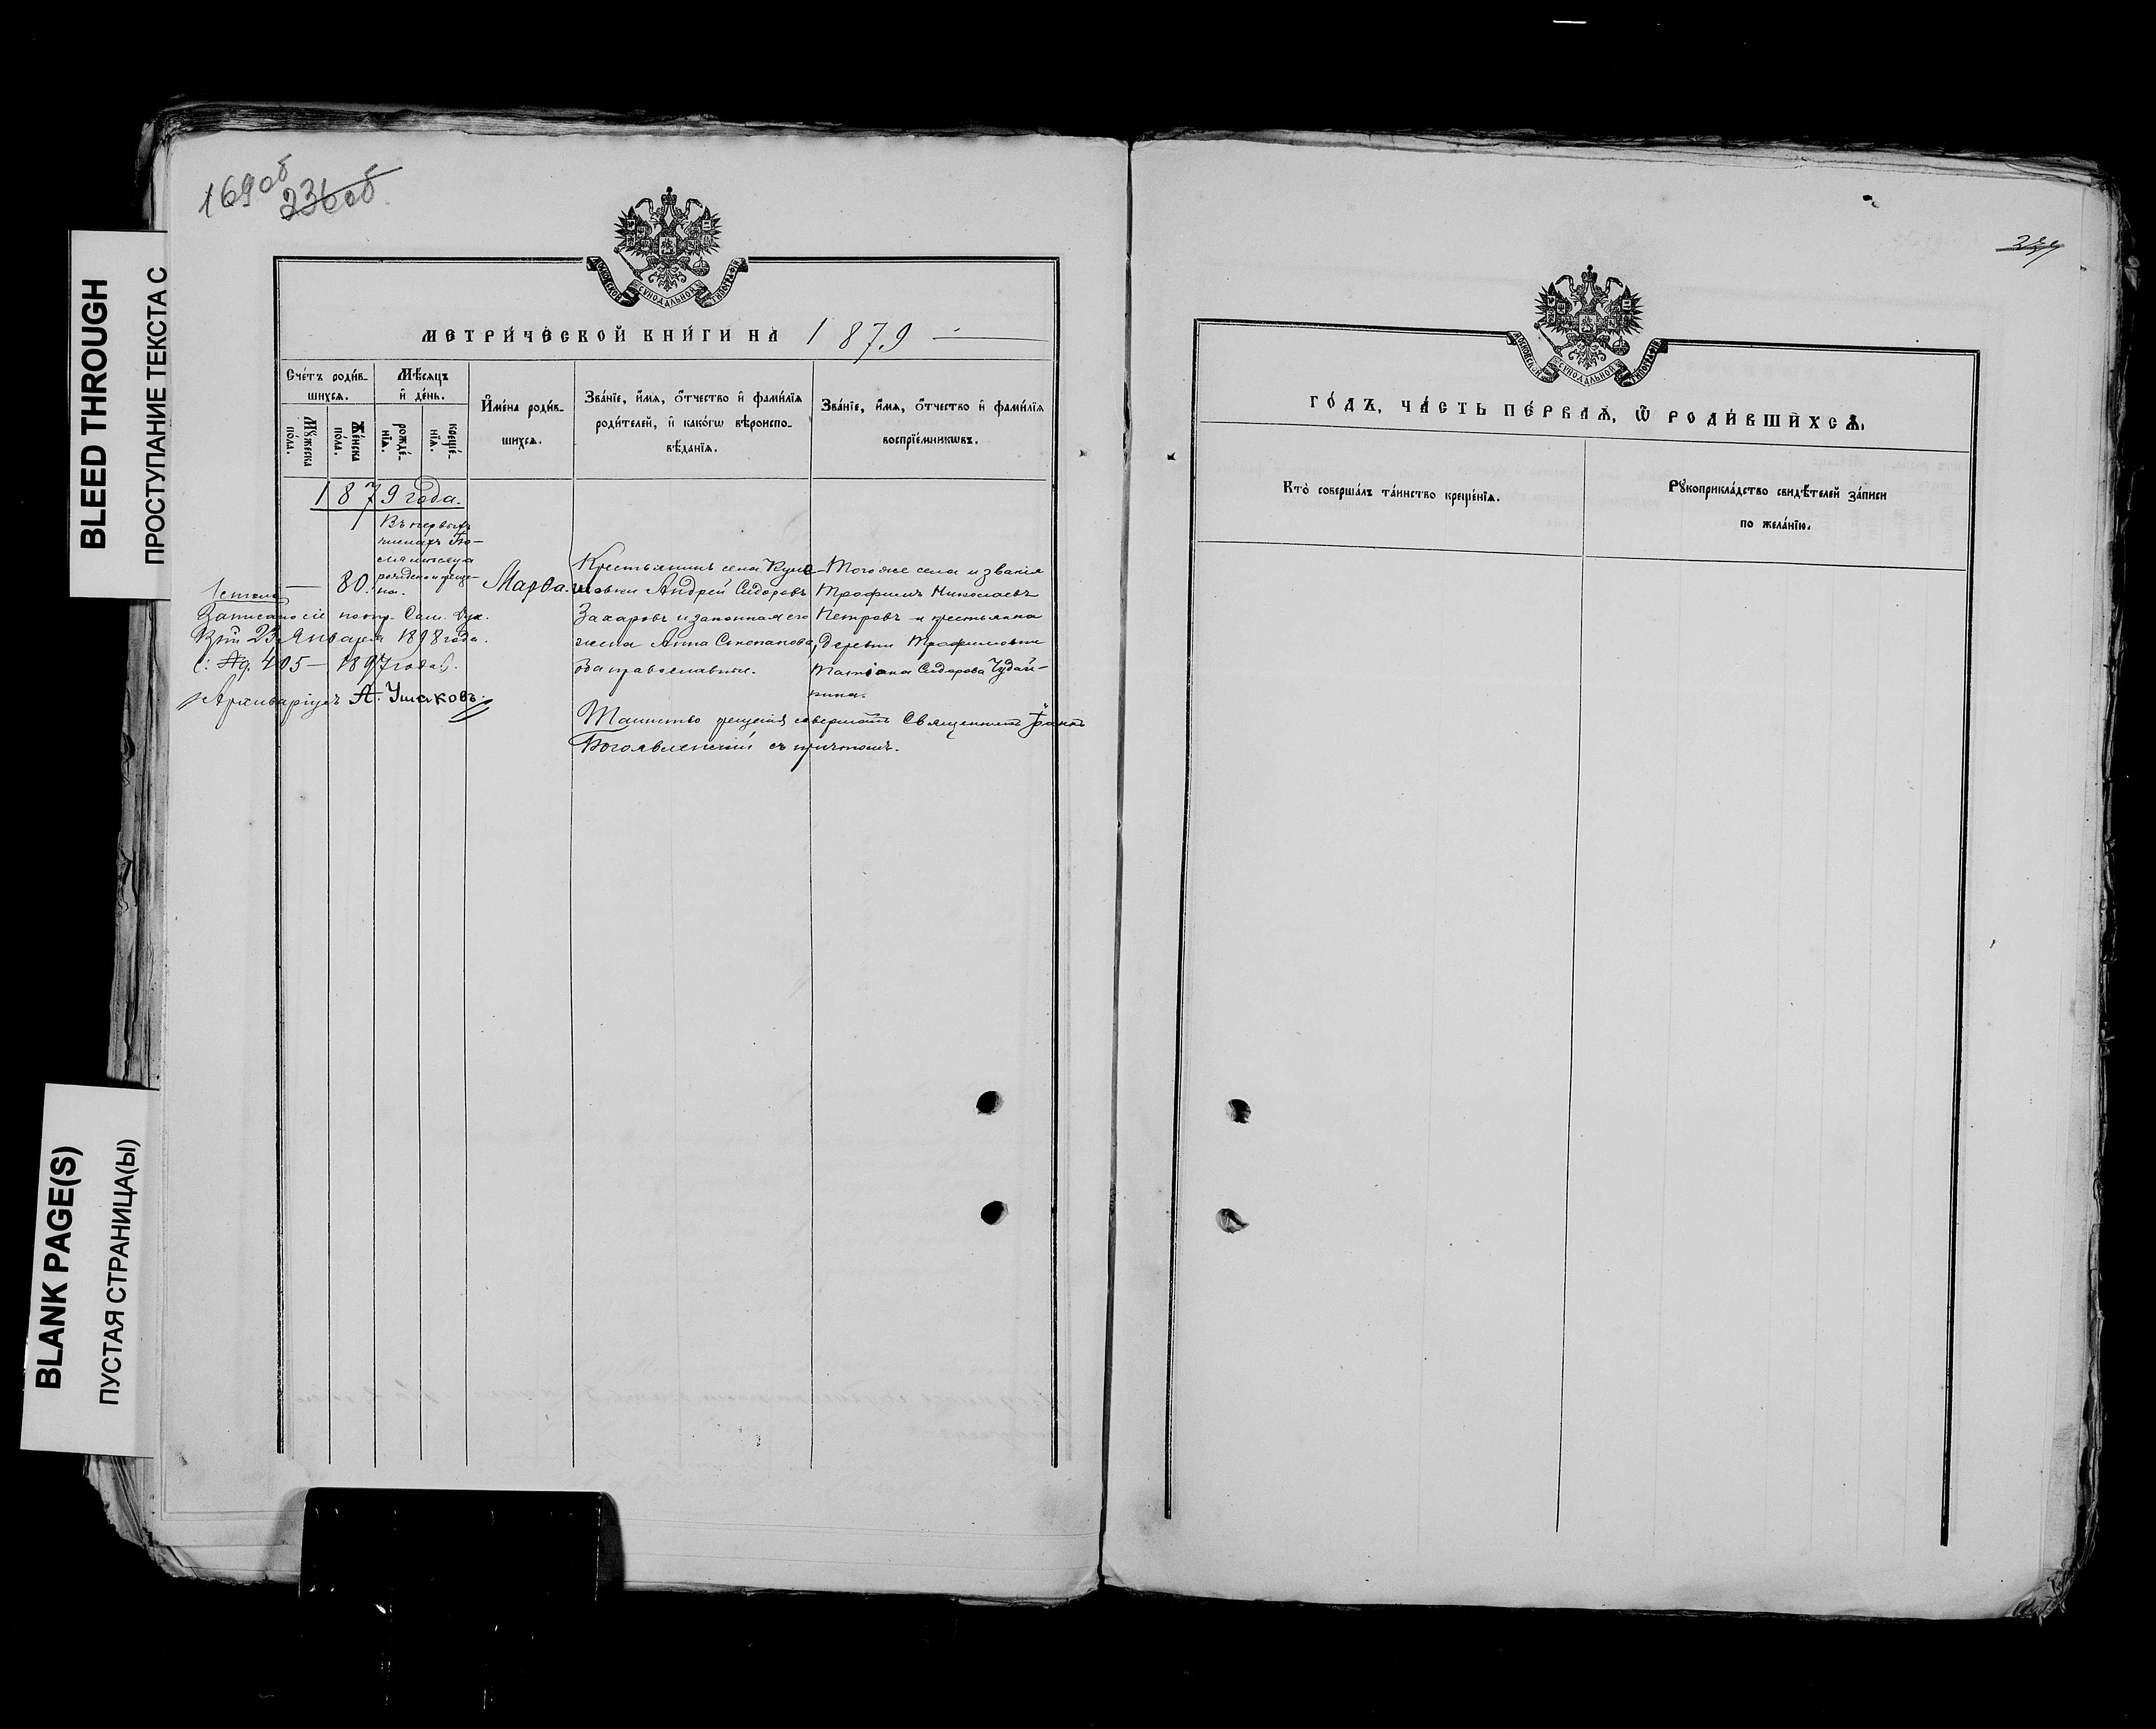 BLEED THROUGH
ПРОСТУПАНИЕ ТЕКСТА С
BLANK PAGE(S)
ПУСТАЯ СТРАНИЦА(Ы)
169об 236об
МОСКОВСКОЙ СѴНОДАЛЬНОЙ ТИПОГРАФІИ
МЕТРИ́ЧЕСКОЙ КНИ́ГИ НА 1879
Сче́тъ роди́в-
шихсѧ.
Мꙋ́жеска
по́ла.
Же́нска
по́ла.
Мѣ́сѧцъ
и҆ де́нь.
рожде́-
нїѧ.
креще́-
нїѧ.
И҆мена̀ роди́в-
шихсѧ.
Зва́нїе, и҆́мѧ, ѻ҆́тчество и҆ фами́лїѧ
роди́телей, и҆ како́гѡ вѣроиспо-
вѣ́данїѧ.
Зва́нїе, и҆́мѧ, ѻ҆́тчество и҆ фами́лїѧ
воспрїе́мникѡвъ.
1879 года.
Въ первыхъ
числахъ Но-
рождена и креще-
на.
80.
Марѳа.
Крестьянинъ села Куле-
шовки Андрей Сидоровъ
Захаровъ и законная его
жена Анна Степанова,
оба православные.
Того же села и званія
Трофимъ Николаевъ
Петровъ и крестьянка
Деревни Трофимовки
Татіана Сидорова Чудай-
кина.
Таинство крещенія совершалъ Священникъ Іоаннъ
Богоявленскій съ причтомъ.
Записано сіе по опр. Сам. Дух.
23 Января 1898 года.
405 — 1897 года).
Архиваріусъ А. Ушаковъ.
237
МОСКОВСКОЙ СѴНОДАЛЬНОЙ ТИПОГРАФІИ
ГО́ДЪ, ЧА́СТЬ ПЕ́РВАѦ, Ѿ РОДИ́ВШИХСѦ.
Кто̀ соверша́лъ та́инство креще́нїѧ.
Рꙋкоприкла́дство свидѣ́телей за́писи
по жела́нїю.